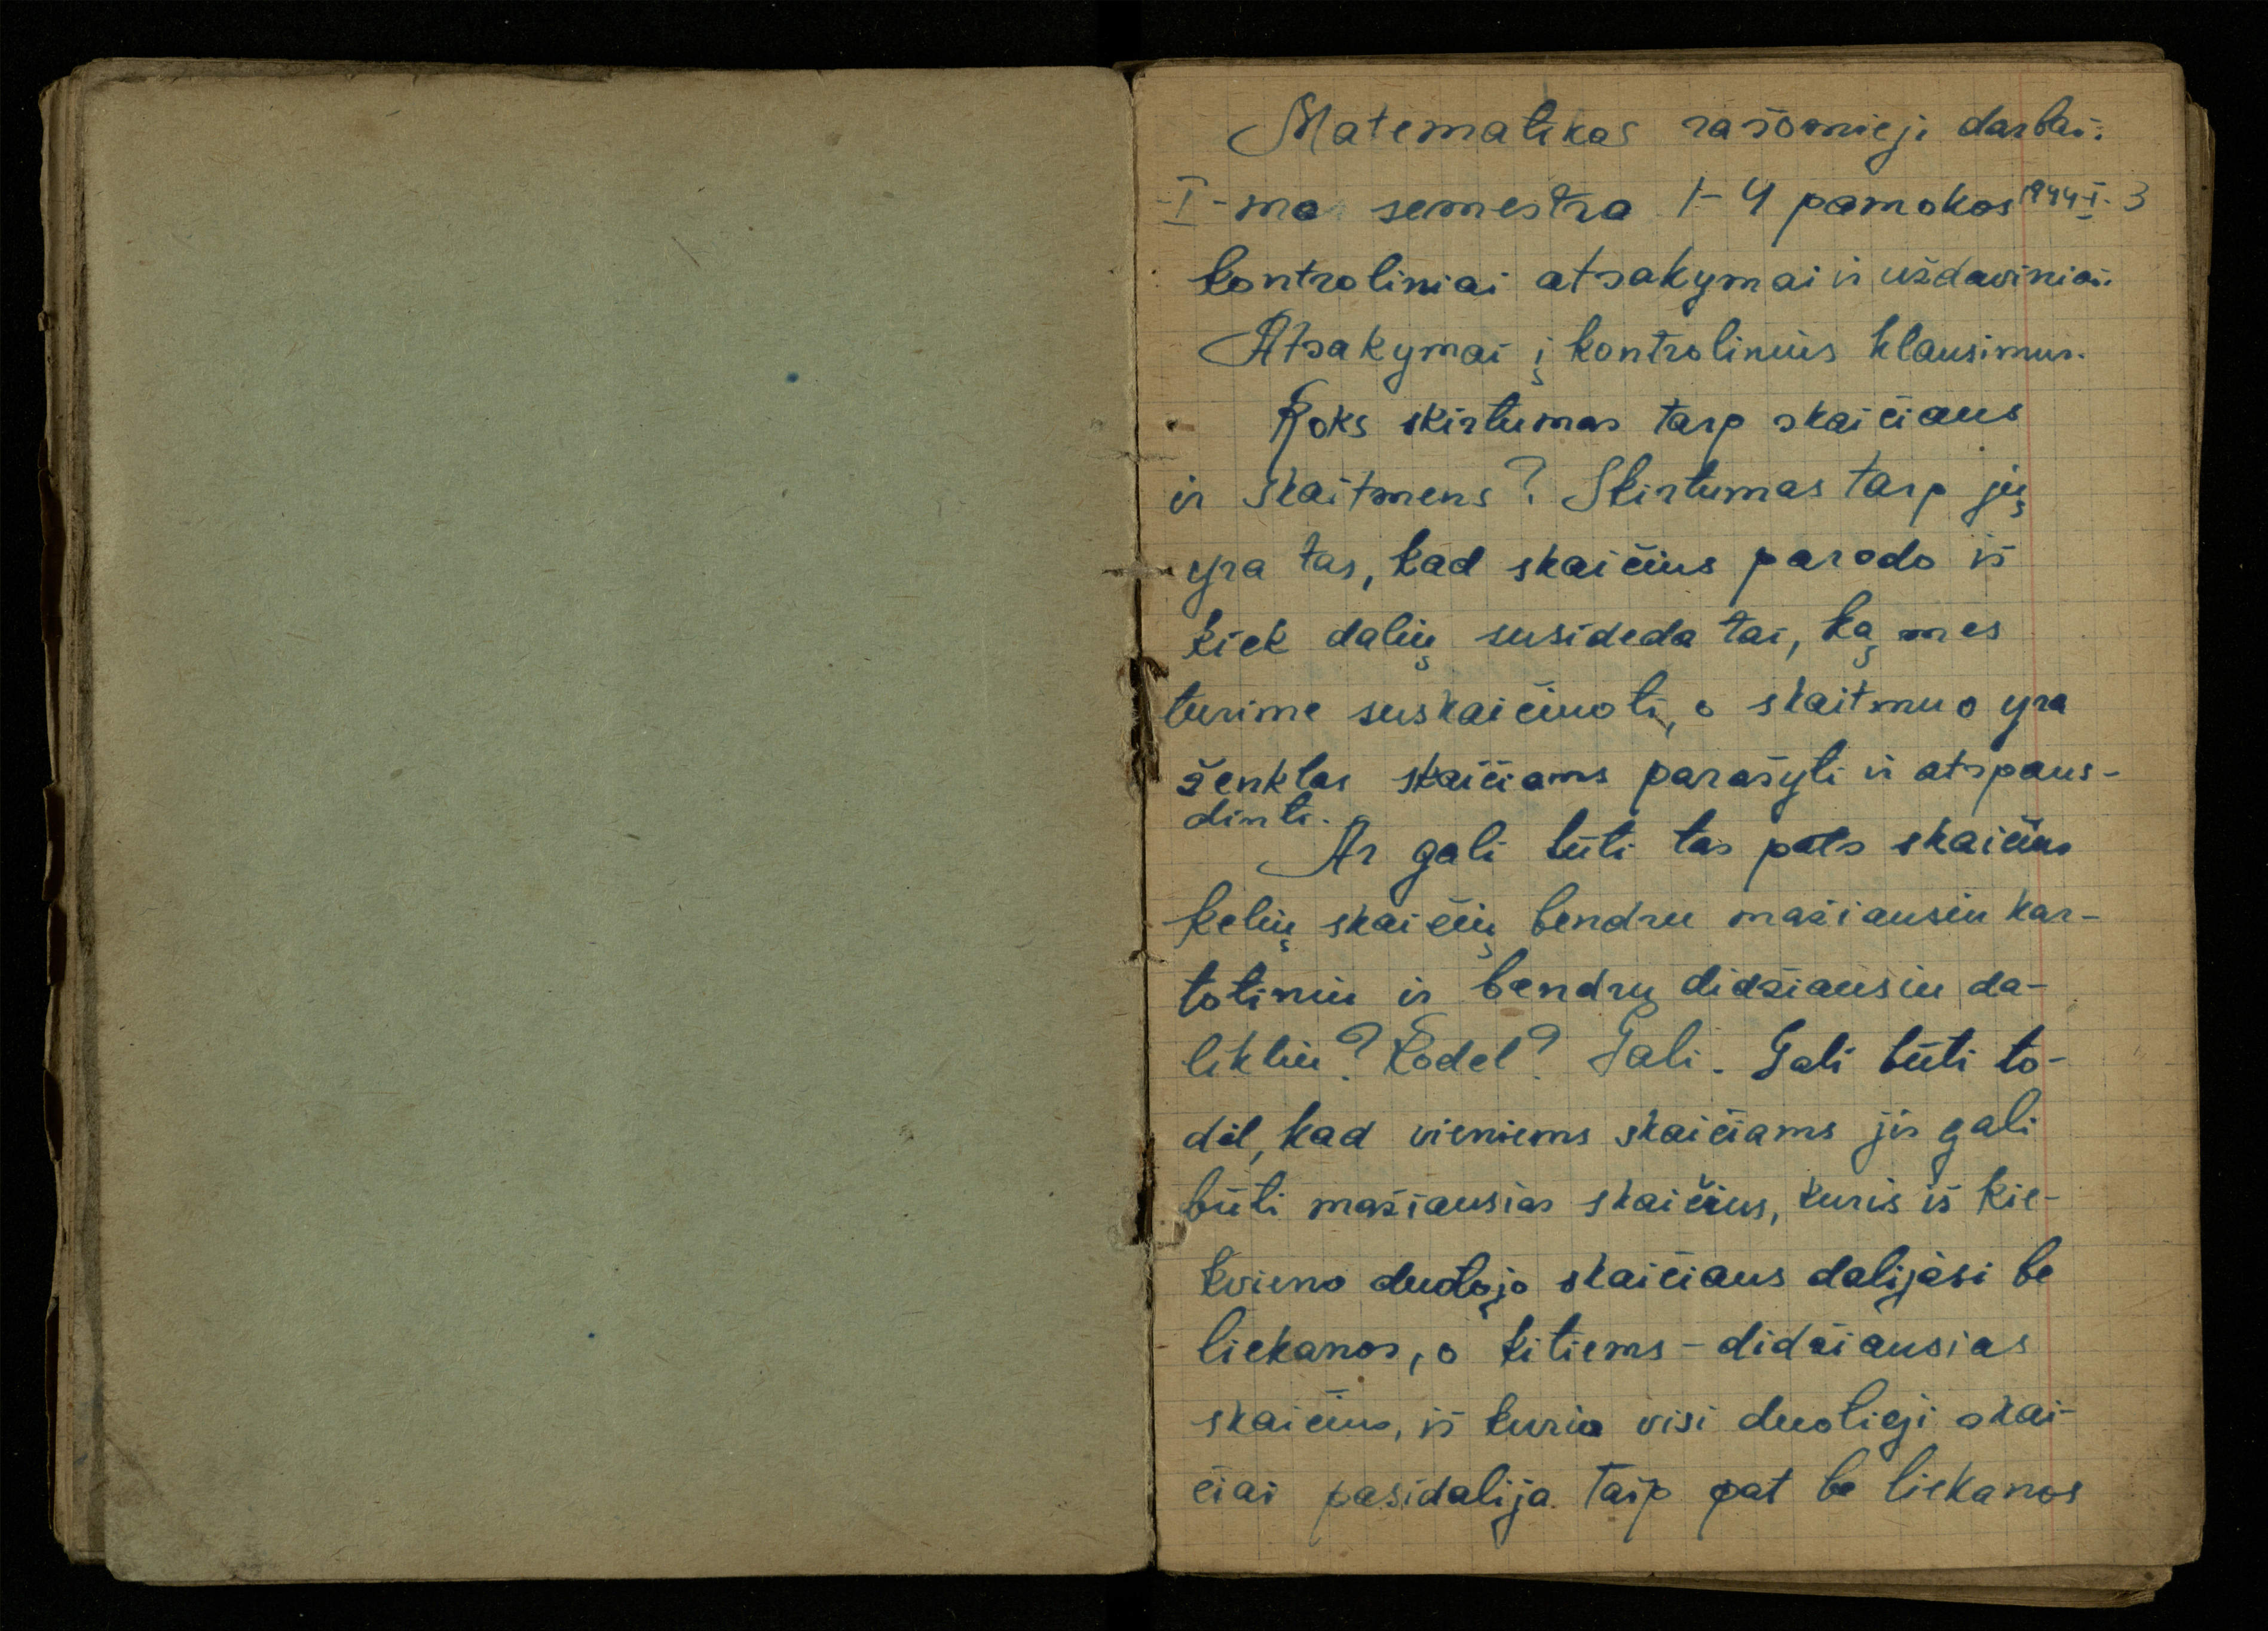 Matematikos rašomieji darbai.
I-ma semestra 1-4 pamokos 1944-I-3
kontroliniai atsakymai ir uždaviniai.
Atsakymai į kontrolinius klausimus.
Koks skirtumas tarp skaičiaus
ir skaitmens? Skirtumas tarp jų
yra tas, kad skaičius parodo iš
kiek dalių susideda tai, ką mes
turime suskaičiuoti, o skaitmuo yra
ženklas skaičiams parašyti ir atspaus-
dinti.
Ar gali būti tas pats skaičius
kelių skaičių bendru mažiausiu kar-
totiniu ir bendrų didžiausiu da-
likliu? Kodel? Gali. Gali būti to-
dėl, kad vieniems skaičiams jis gali
būti mažiausias skaičius, kuris iš kie-
kvieno duotojo skaičiaus dalijasi be
liekanos, o kitiems - didžiausias
skaičius, iš kurio visi duotieji skai-
čiai pasidalija taip pat be liekanos